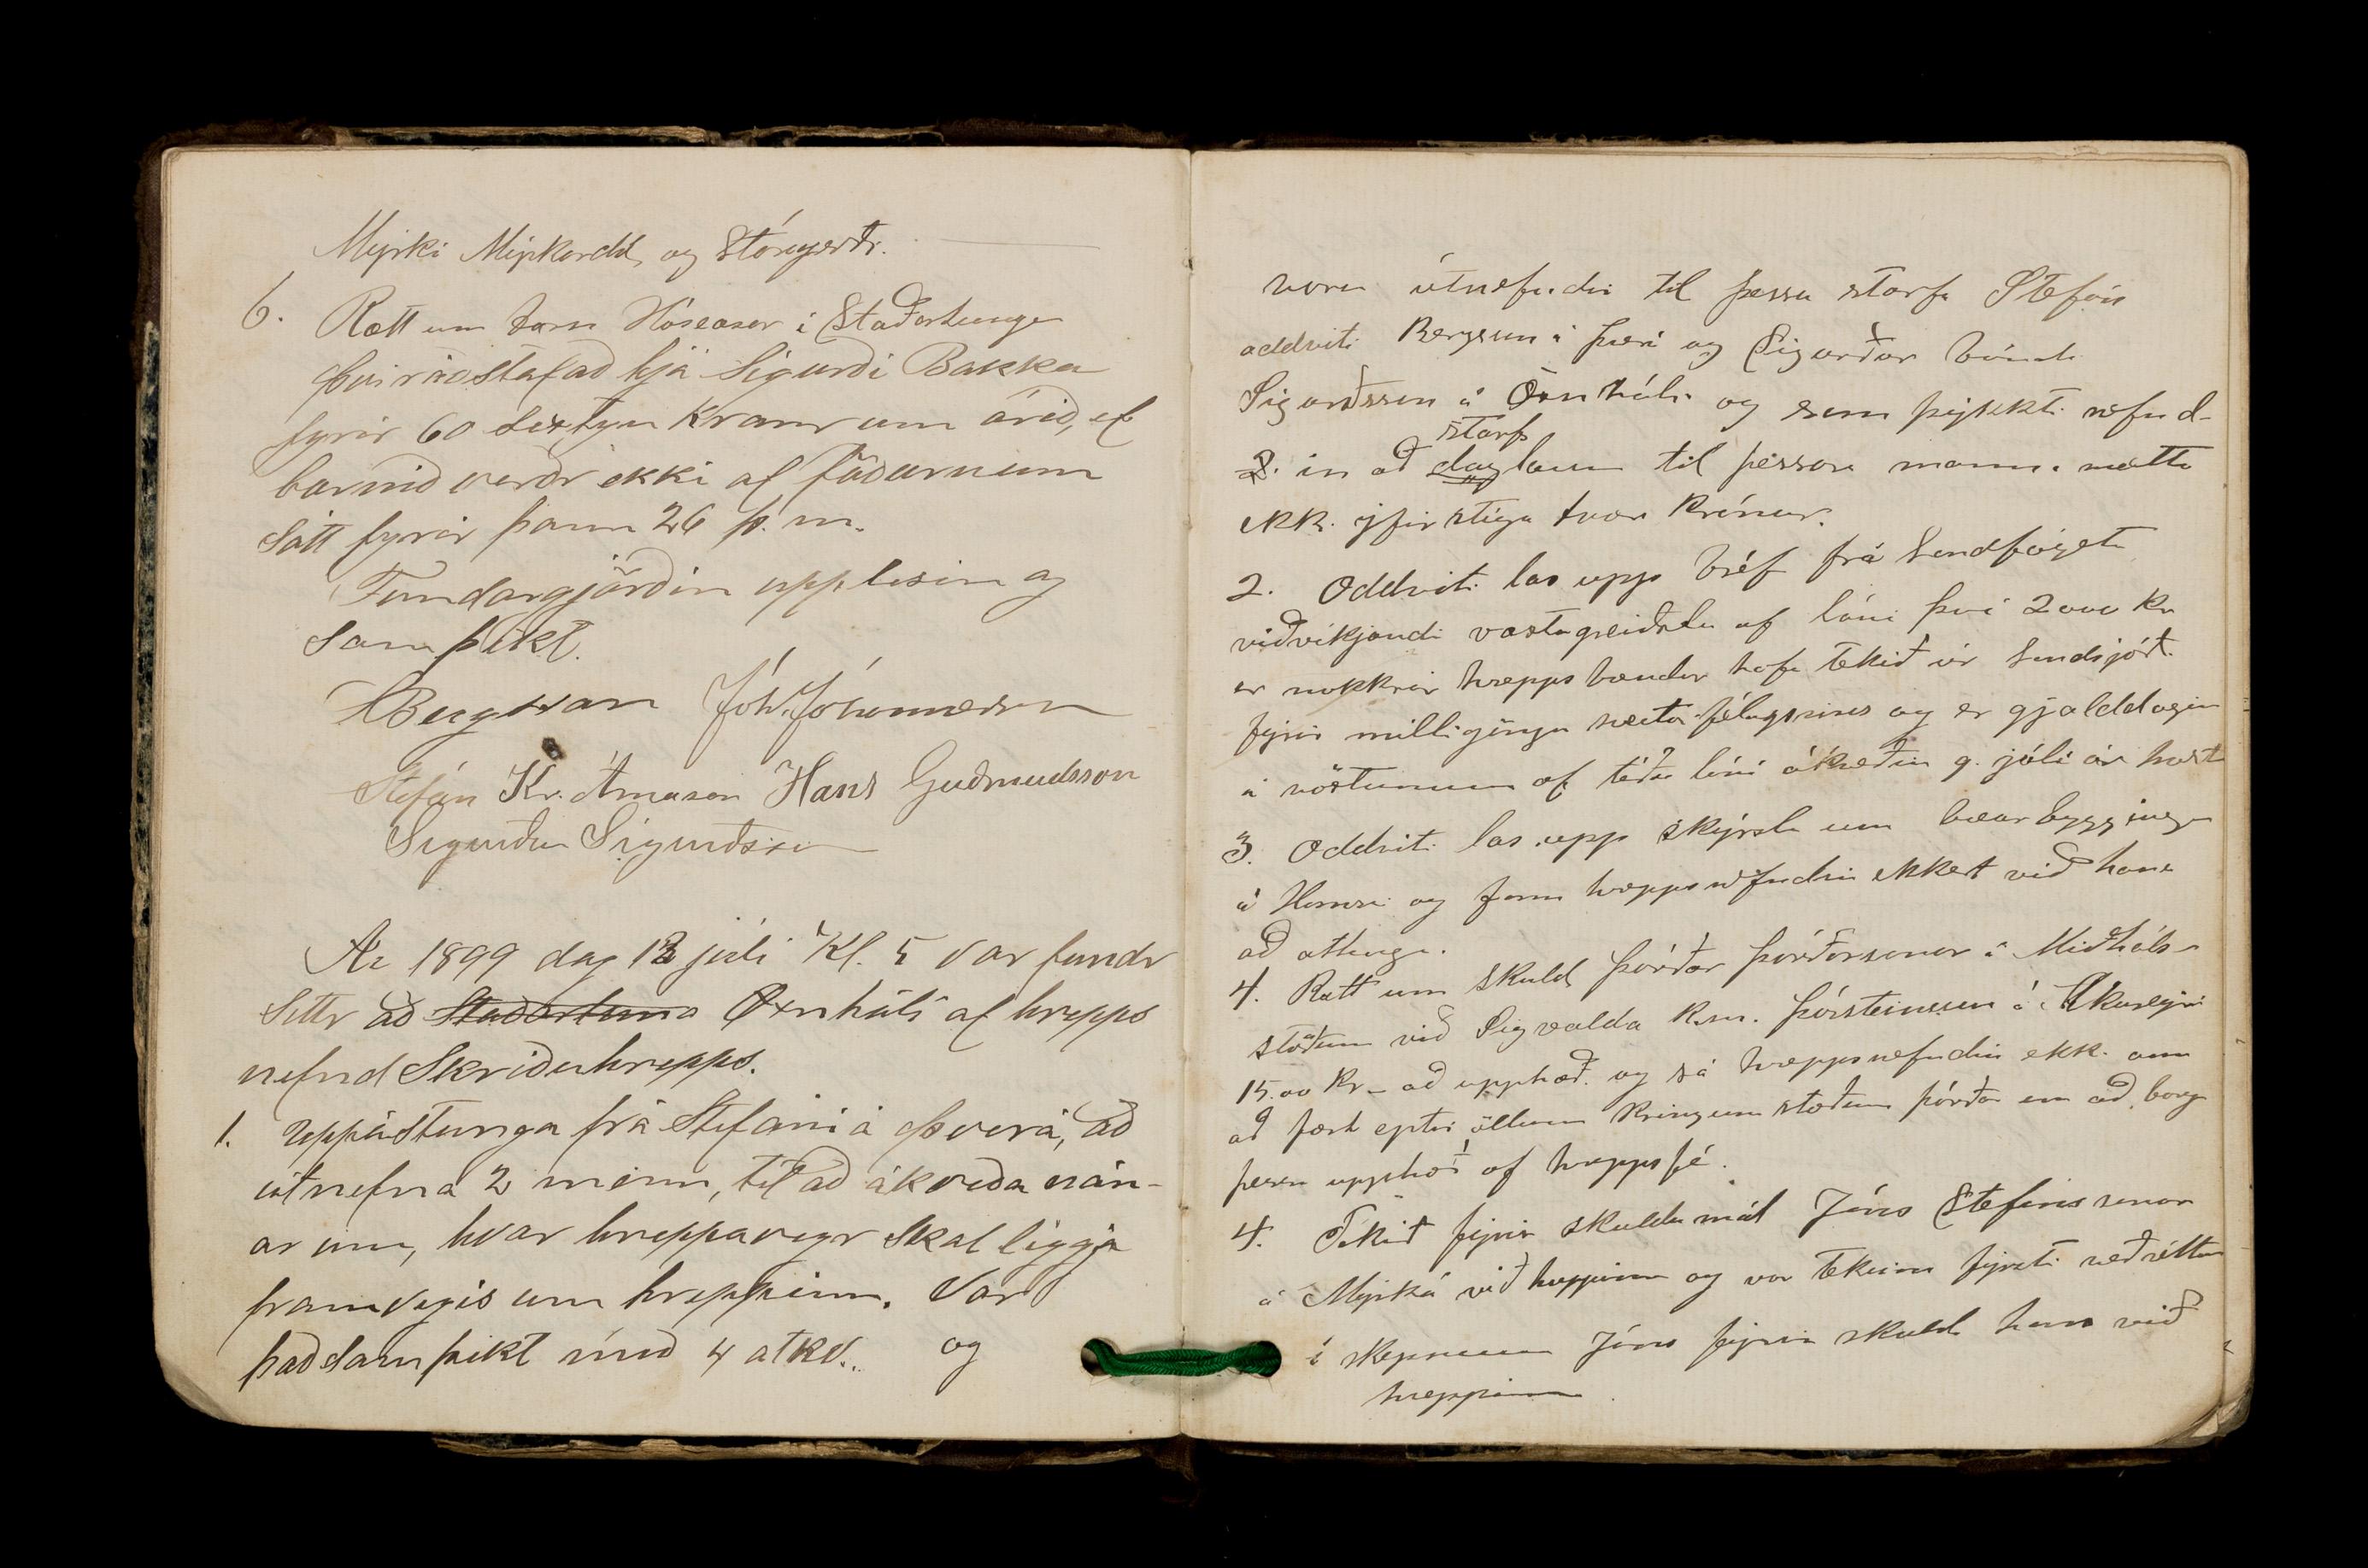 Myrki Myrkárdal, og Stóragerði.
6. Rætt um barn Hóseasar í Staðartungu
Því ráðstafað hjá Sigurði Bakka
fyrir 60 sextyu Kronr um árið, ef
barnið verðr ekki af föðurnum
sótt fyrir þann 26 þ. m.
Fundargjörðin upplesin og
samþikt.
SBergsson Jóh. Jóhannesson
Stefán Kr. Árnason Hans Guðmundsson
Sigurður Sigurðsson
Ár 1899 dag 13 júli Kl. 5 var fundr
settr að Staðartunu Öxnhóli af hrepps
nefnd Skriðuhrepps.
1. Uppástunga frá Stefáni á Þverá, að
útnefna 2 menn, til að ákveða nán-
ar um, hvar hreppavegr skal liggja
framvegis um hreppinn. Var
það samþikt með 4 atkv. og
voru útnefndir til þessa starfa Stefán
oddviti Bergsson á Þverá og Sigurður bóndi
Sigurðsson á Öxnhóli og sem þykkti nefnd-
2. in að starfs daglaun til þessara manna mætti
ekki yfirstíga tvær krónur.
2. Oddviti las upp bréf frá landfógeta
viðvíkjandi vaxtagreiðslu af láni því 2000 Kr
er nokkrir hreppsbændur hafa tekið úr landsjóði
fyrir milligöngu sveitafélagsins og er gjalddagin
á vöxtunum af téðu láni ákveðin 9. júli ár hvert
3. Oddviti las upp skýrslu um bæarbyggingu
á Hamri og fann hreppsnefndin ekkert við hana
að athuga.
4. Rætt um skuld Þórðar Þórðarsonar á Miðhálsa
stöðum við Sigvalda Ksm. Þórsteinsson á Akureyri
15.00 Kr- að upphæð. og sá hreppsnefndin ekki ann
að fært eptir öllum kringumstæðum Þórðar en að borga
þessa upphæð af hreppsfé.
4. Tekið fyrir skuldamál Jóns Stefánssonar
á Myrká við hreppinn og var tekinn fyrsti veðréttur
í skepnum Jóns fyrir skuld hans við
hreppinn.